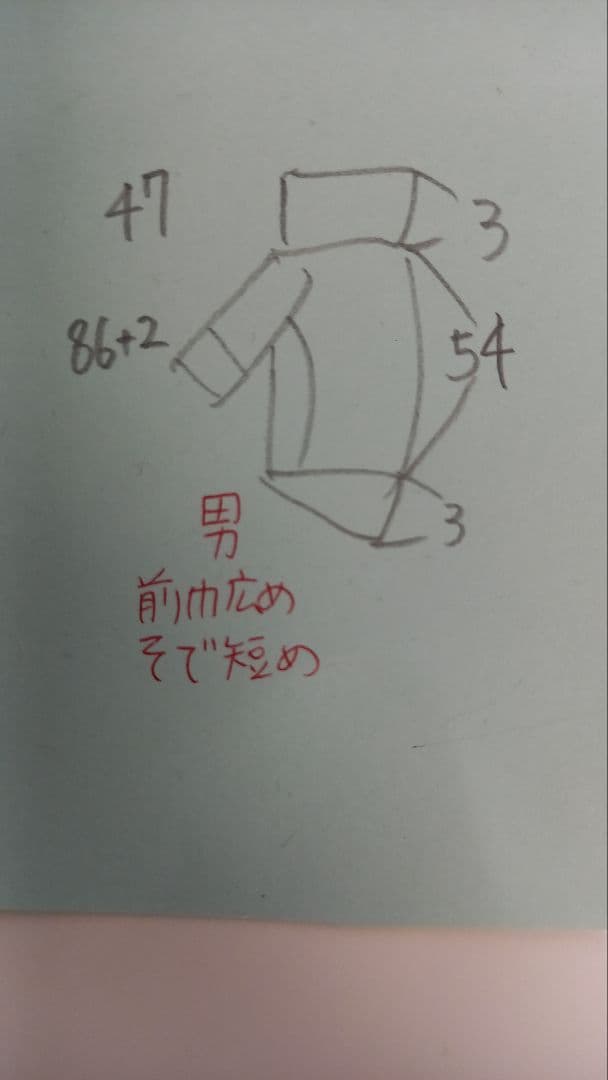 47
3
86+2
54
3
男
前巾広め
そで短め